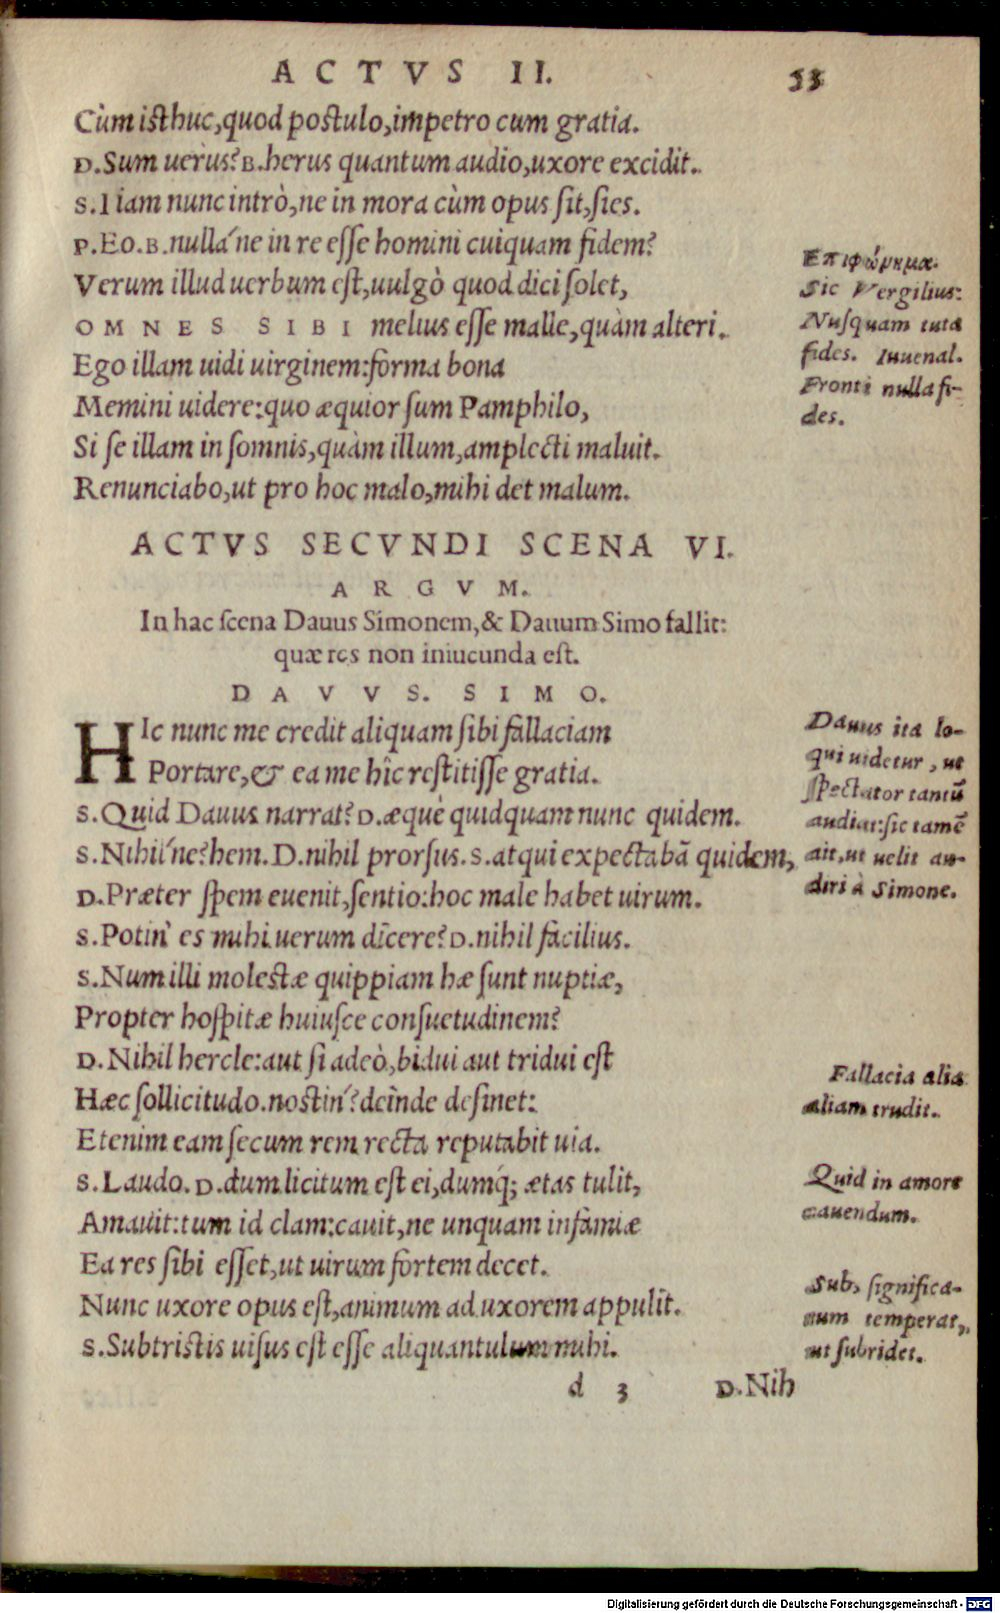 ACTVS II. 53
Cùm isthuc, quod postulo, impetro cum gratia.
D. Sum uerus? B. herus quantum audio, uxore excidit.
S. I iam nunc intrò, ne in mora cùm opus sit, sies.
P. Eo. B. nulla´ne in re esse homini cuiquam fidem?
Verum illud uerbum est, uulgò quod dici solet,
OMNES SIBI melius esse malle, quàm alteri.
Ego illam uidi uirginem: forma bona
Memini uidere: quo æquior sum Pamphilo,
Si se illam in somnis, quàm illum, amplecti maluit.
Renunciabo, ut pro hoc malo, mihi det malum.
Επιφώνημα.
Sic Vergilius:
Nusquam tuta
fides. Iuuenal.
Fronti nulla fi-
des.
ACTVS SECVNDI SCENA VI.
ARGVM.
In hac scena Dauus Simonem, & Dauum Simo fallit:
quæ res non iniucunda est.
DAVVS. SIMO.
HIc nunc me credit aliquam sibi fallaciam
Portare, & ea me hîc restitisse gratia.
S. Quid Dauus narrat? D. æquè quidquam nunc quidem.
S. Nihil´ne? hem. D. nihil prorsus. S. atqui expectabã quidem,
D. Præter spem euenit, sentio: hoc male habet uirum.
S. Potin´ es mihi uerum dicere? D. nihil facilius.
S. Num illi molestæ quippiam hæ sunt nuptiæ,
Propter hospitæ huiusce consuetudinem?
D. Nihil hercle: aut si adeò, bidui aut tridui est
Hæc sollicitudo. nostin´? deinde desinet:
Etenim eam secum rem recta reputabit uia.
S. Laudo. D. dum licitum est ei, dumq́; ætas tulit,
Amauit: tum id clam: cauit, ne unquam infamiæ
Ea res sibi esset, ut uirum fortem decet.
Nunc uxore opus est, animum ad uxorem appulit.
S. Subtristis uisus est esse aliquantulum mihi.
Dauus ita lo-
qui uidetur, ut
spectator tantũ
audiat: sic tamẽ
ait, ut uelit au-
diri à Simone.
Fallacia alia
aliam trudit.
Quid in amore
cauendum.
Sub, significa-
tum temperat,
ut subridet.
d 3 D. Nih
Digitalisierung gefördert durch die Deutsche Forschungsgemeinschaft - DFG